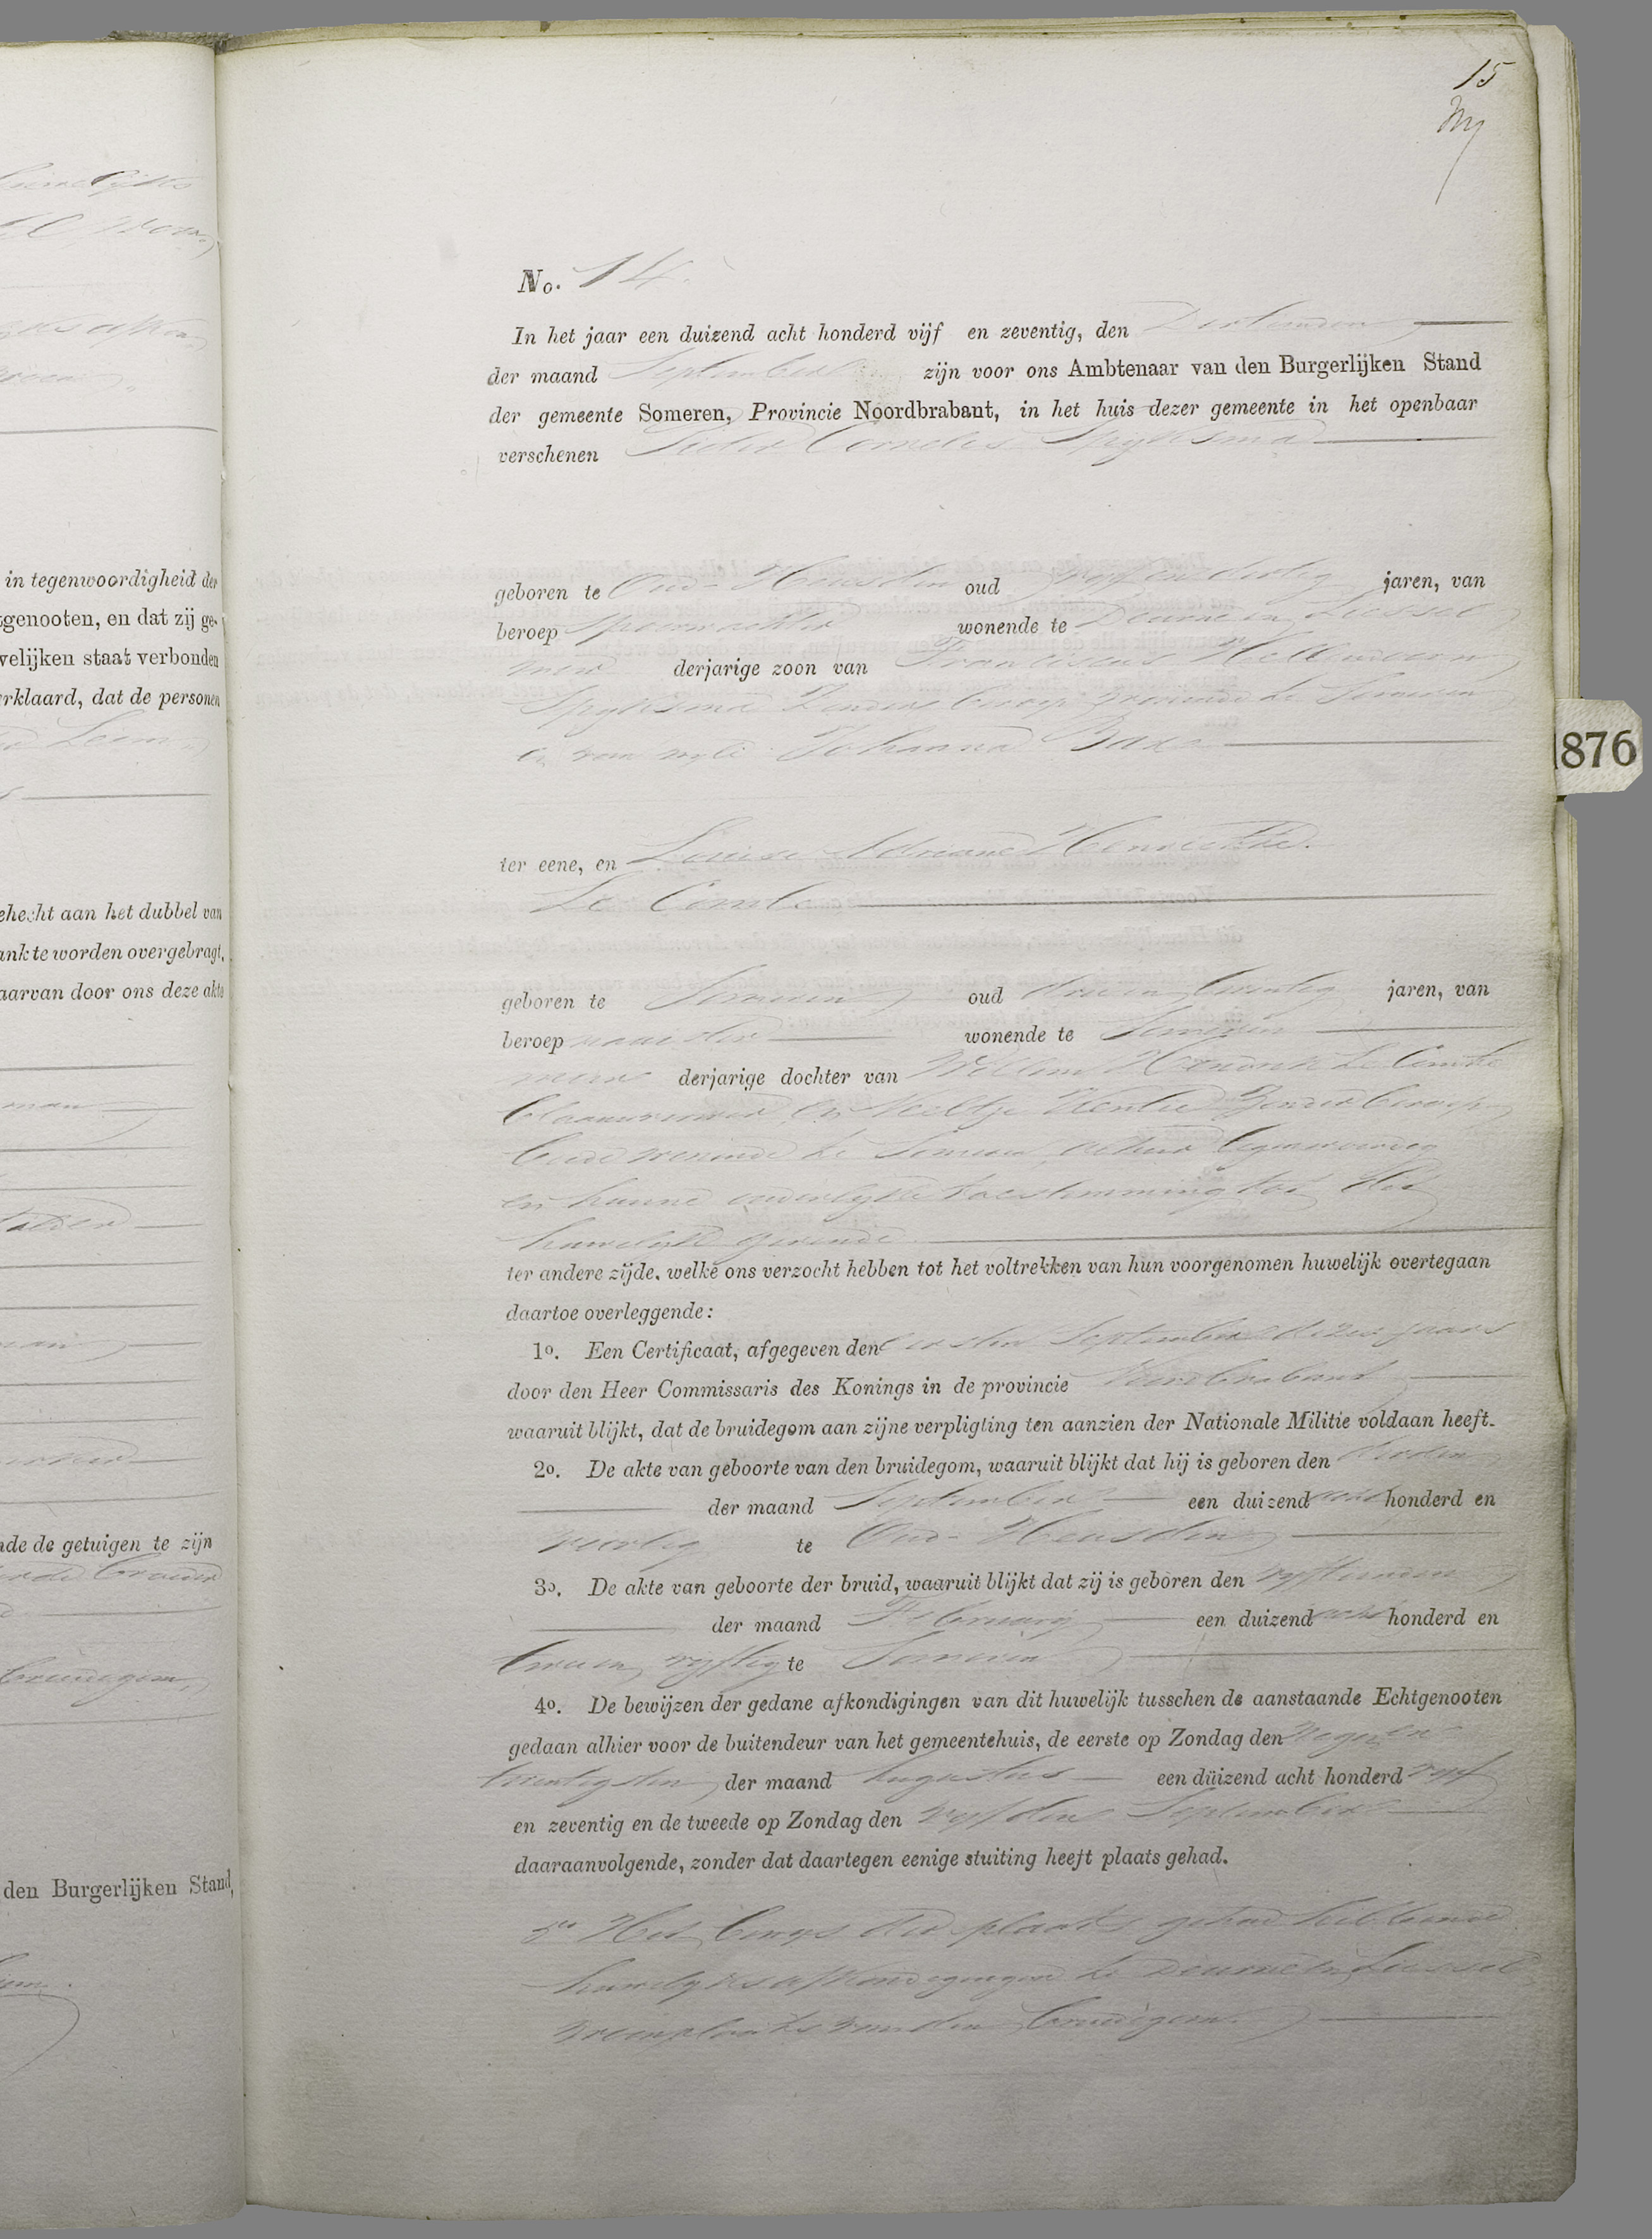 15
No. 14.
In het jaar een duizend acht honderd vijf en zeventig, den Dertienden
der maand September zijn voor ons Ambtenaar van den Burgerlijken Stand
der gemeente Someren, Provincie Noordbrabant, in het huis dezer gemeente in het openbaar
verschenen Pieter Cornelis Spijksma
geboren te Oud-Heusden oud vijf en dertig jaren, van
beroep Spoorwachter wonende te Deurne en Liessel
meer derjarige zoon van Franciscus
Spijksma Zonder beroep wonende te Someren
en van wijle Johanna Bax
ter eene, en Louise Adriana Henriette
Le Comte
geboren te Someren oud drie en twintig jaren, van
beroep naaister wonende te Someren
meer derjarige dochter van Willem Hendrik Le Comte
en Neeltje Zonder beroep
beide wonende te Someren alhier tegenwoordig
en hunne ouderlijke toestemming tot dit
huwelijk gevende
ter andere zijde, welke ons verzocht hebben tot het voltrekken van hun voorgenomen huwelijk overtegaan
daartoe overleggende:
1o. Een Certificaat, afgegeven den eersten September dezes jaars
door den Heer Commissaris des Konings in de provincie Noordbrabant
waaruit blijkt, dat de bruidegom aan zijne verpligting ten aanzien der Nationale Militie voldaan heeft.
2o. De akte van geboorte van den bruidegom, waaruit blijkt dat hij is geboren den derden
der maand September een duizend acht honderd en
veertig te Oud-Heusden
3o. De akte van geboorte der bruid, waaruit blijkt dat zij is geboren den vijftienden
der maand Februarij een duizend acht honderd en
twee en vijftig te Someren
4o. De bewijzen der gedane afkondigingen van dit huwelijk tusschen de aanstaande Echtgenooten
gedaan alhier voor de buitendeur van het gemeentehuis, de eerste op Zondag den Negen en
twintigsten der maand Augustus een duizend acht honderd vijf
en zeventig en de tweede op Zondag den vijfden September
daaraanvolgende, zonder dat daartegen eenige stuiting heeft plaats gehad.
5o Het bewijs der plaats gehad hebbende
huwelijksafkondigingen te Deurne en Liessel
woonplaats van den bruidegom.
1876
in tegenwoordigheid der
tgenooten, en dat zij ge-
velijken staat verbonden
rklaard, dat de personen
ehecht aan het dubbel van
ank te worden overgebragt,
aarvan door ons deze akte
nde de getuigen te zijn
bruidegom
den Burgerlijken Stand,